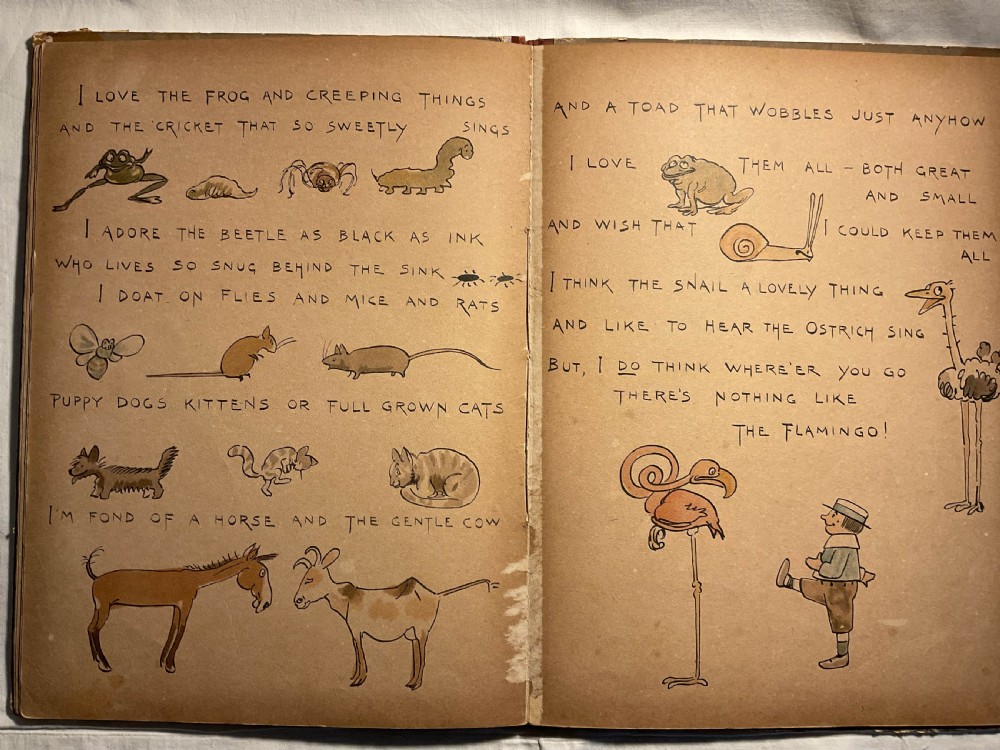 I LOVE THE FROG AND CREEPING THINGS
AND THE CRICKET THAT SO SWEETLY SINGS
I ADORE THE BEETLE AS BLACK AS INK
WHO LIVES SO SNUG BEHIND THE SINK
I DOAT ON FLIES AND MICE AND RATS
PUPPY DOGS KITTENS OR FULL GROWN CATS
I'M FOND OF A HORSE AND THE GENTLE COW
AND A TOAD THAT WOBBLES JUST ANYHOW
I LOVE THEM ALL – BOTH GREAT
AND SMALL
AND WISH THAT I COULD KEEP THEM
ALL
I THINK THE SNAIL A LOVELY THING
AND LIKE TO HEAR THE OSTRICH SING
BUT, I DO THINK WHERE'ER YOU GO
THERE'S NOTHING LIKE
THE FLAMINGO!